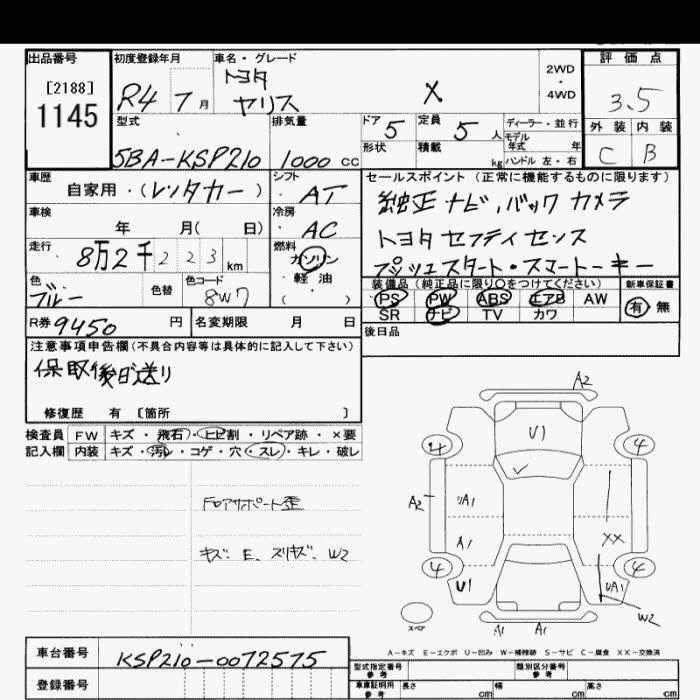 出品番号 初度登録年月 車名・グレード 2WD・4WD 評価点
[2188]
1145
R4 7月 トヨタ
ヤリス X 3.5
外装 内装
C B
型式 排気量 ドア 定員 ディーラー・並行
5BA-KSP210 1000cc 5 5人 モデル年式 年
形状 積載 kg ハンドル 左・右
車歴 シフト セールスポイント (正常に機能するものに限ります)
自家用・(レンタカー) AT 純正ナビ、バックカメラ
車検 冷房 トヨタセフティセンス
年 月( 日) AC プッシュスタート・スマートキー
走行 燃料
8万2千223km ガソリン・軽油・( )
色 色替 色コード
ブルー 8W7
装備品(純正品に限り〇をつけてください) 新車保証書
PS PW ABS エアB AW 有・無
SR ナビ TV カワ
R券 9450円 名変期限 月 日 後日品
注意事項申告欄(不具合内容等は具体的に記入して下さい)
保取後日送り
修復歴 有 [箇所 ]
検査員 FW キズ・飛石・ヒビ割・リペア跡・×要
記入欄 内装 キズ・汚レ・コゲ・穴・スレ・キレ・破レ
Fロアサポート歪
キズ、E、スリキズ、W2
A2
U1
4 4
A2 UA1
A1 XX
4 4
U1 UA1
W2
A1 A1
スペア
A-キズ E-エクボ U-凹み W-補修跡 S-サビ C-腐食 XX-交換済
車台番号 KSP210-0072575
登録番号
型式指定番号 参考 類別区分番号 参考
車庫証明用 参考 長さ cm 幅 cm 高さ cm